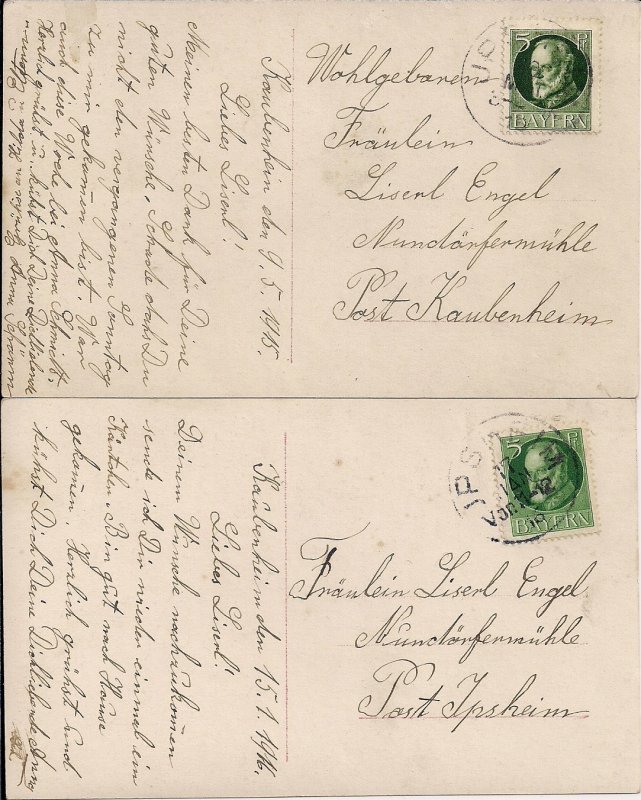 Kaubenheim den 9.5.1915.
Liebes Liserl!
Meinen besten Dank für Deine
guten Wünsche, Schade dass Du
nicht den vergangenen Sonntag
zu mir gekommen bist. War
auch diese Woche bei Anna Schmidt.
Herzlich grüßt u. küßt Dich Deine Dichliebende
Anna
5 Pf
BAYERN
Wohlgeboren
Fräulein
Liserl Engel
Nundörfermühle
Post Kaubenheim
Kaubenheim den 15.1.1916.
Liebes Liserl!
Deinem Wunsche nachzukommen
sende ich Dir wieder einmal ein
Kärtchen. Bin gut nach Hause
gekommen. Herzlich grüßt und
küßt Dich Deine Dichliebende Anna
5 Pf
BAYERN
IPSHEIM
17
JAN
VORM
Fräulein Liserl Engel
Nundörfermühle
Post Ipsheim